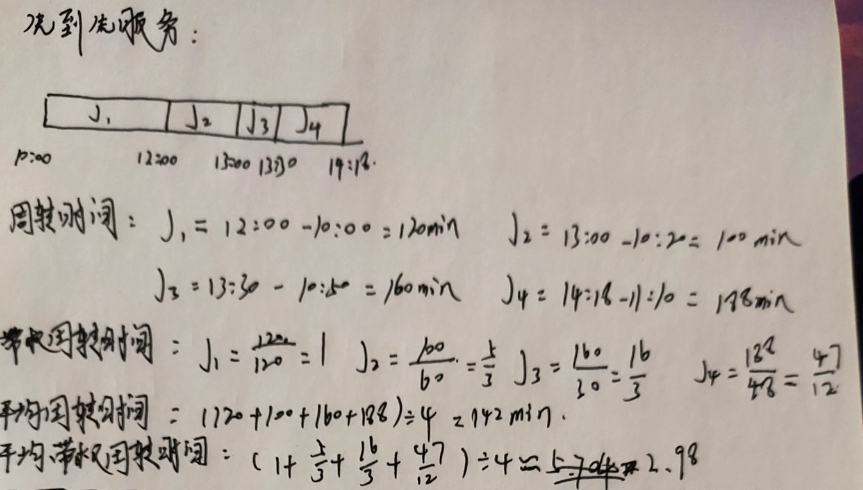 先到先服务:
J₁ J₂ J3 J4
10:00 12:00 13:00 13:30 14:18.
周转时间: J₁ = 12:00 -10:00 = 120min J₂ = 13:00 -10:20 = 100 min
J₃ = 13:30 - 10:50 = 160min J4 = 14:18 -11:10 = 188min
带权周转时间: J₁ = 120/120 = 1 J₂ = 100/60 = 5/3 J₃ = 160/30 = 16/3 J4 = 188/48 = 47/12
平均周转时间 : (120+100+160+188)÷4 = 142min.
平均带权周转时间: (1+ 5/3 + 16/3 + 47/12 ) ÷4 ≈ 2.98